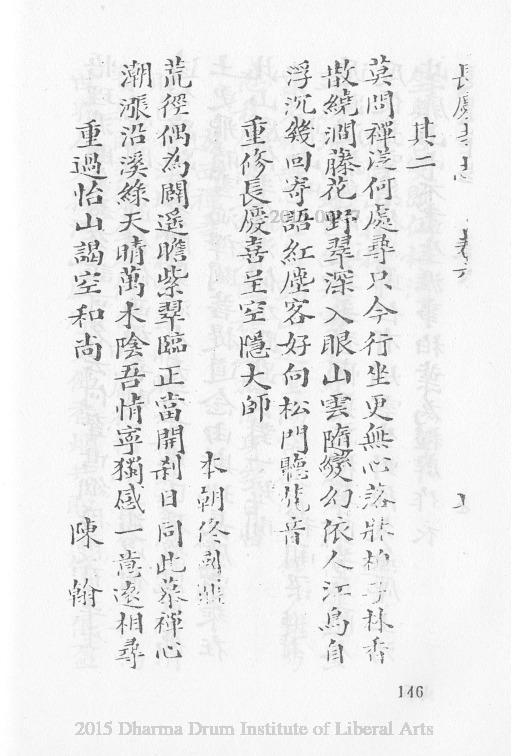 長慶寺志
其二
莫問禪從何處尋只今行坐更無心落牀柏子林香
散繞澗藤花野翠深入眼山雲隨變幻依人江鳥自
浮沉幾回寄語紅塵客好向松門聽梵音
重修長慶喜呈空隱大師
本朝佟國
荒徑偶為闢遥瞻紫翠臨正當開刹日同此慕禪心
潮漲沿溪綠天晴萬木陰吾情寧獨感一葦遠相尋
重過怡山謁空和尚 陳翰
146
2015 Dharma Drum Institute of Liberal Arts